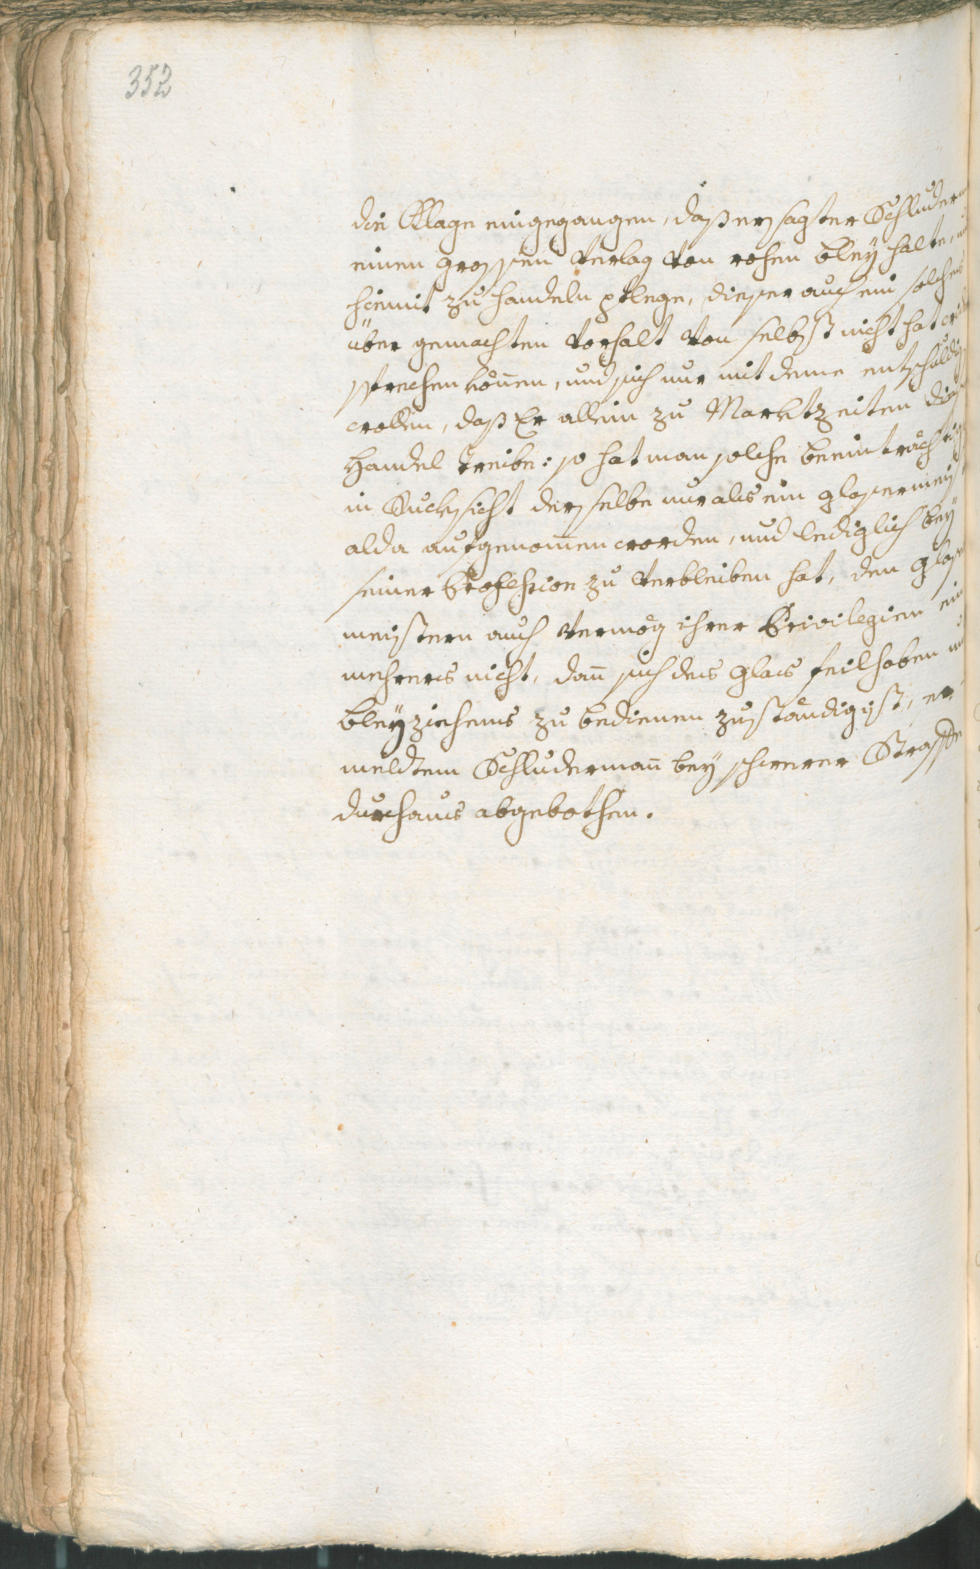 352
die Klage eingegangen, daß ersagter Schluder
einen grossen Verlag von rohen bleÿ halte,
hiemit zu handeln pflege, dieser auch ein solches
über gemachten Vorhalt von selbst nicht hat
sprechen können, und sich nur mit deme entschuldig
wollen, daß Er allein zu Marktzeiten
Handel treibe: so hat man solche beeinträchtig
in Rucksicht derselbe nur als ein glasermeis
alda aufgenom̅en worden, und lediglich beÿ
seiner Profession zu verbleiben hat, den glas
meistern auch vermög ihrer Privilegien ein
mehrers nicht, dan̅ sich des glas feilhaben
bleÿziehens zu bedienen zuständig ist, er¬
meldtem Schluderman̅ beÿ schwerer Straffe
durchaus abgebothen.